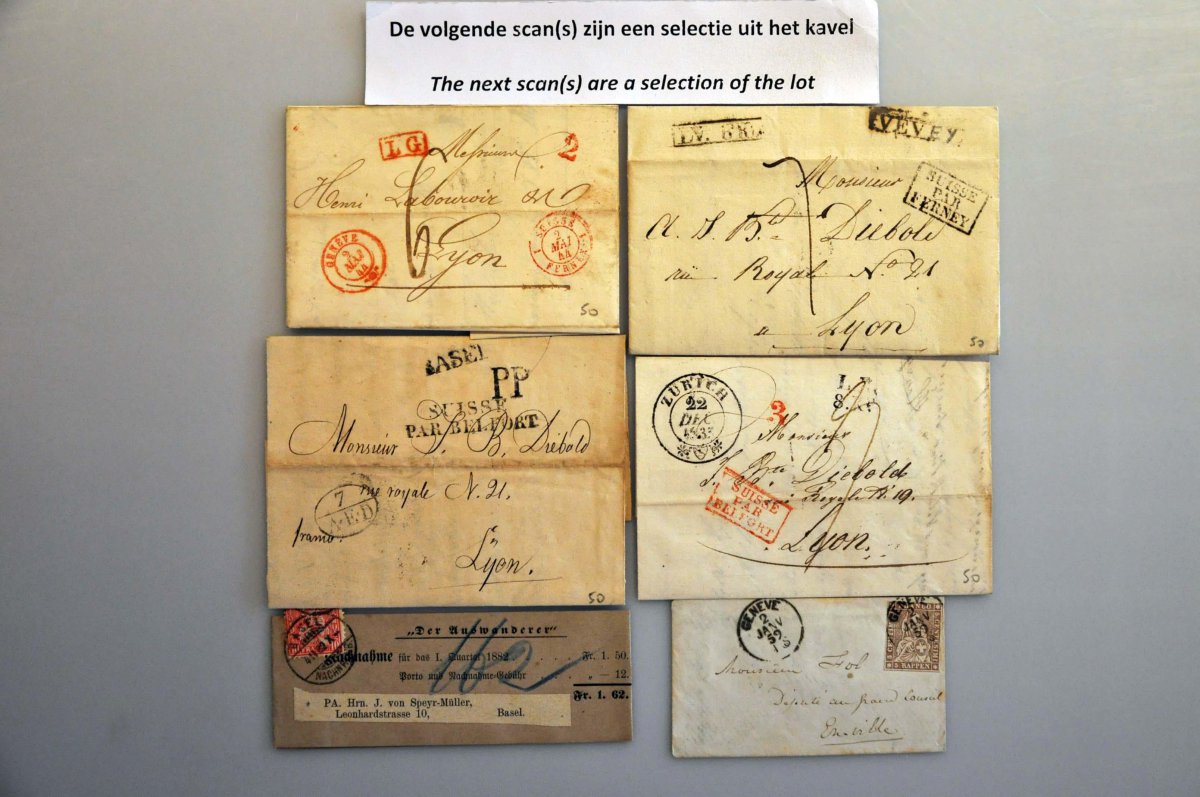 De volgende scan(s) zijn een selectie uit het kavel
The next scan(s) are a selection of the lot
LG
2
Messieurs
Henri Labouroir
6
Lyon
GENÈVE
2
MAI
44
SUISSE
2
MAI
44
FERNEY
50
LV. FR.
VEVEY
SUISSE
PAR
FERNEY
7
Monsieur
A. J. Bte Diebold
rue Royale No 21
a Lyon
50
BASEL
PP
SUISSE
PAR BELFORT
Monsieur J. B. Diébold
rue royale N. 21.
7
A.E.D
franco.
Lyon.
50
ZURICH
22
DEC
SUISSE
PAR
BELFORT
Monsieur
Diebold
Royale No 19.
Lyon.
50
„Der Auswanderer"
Nachnahme für das I. Quartal 1882 Fr. 1. 50.
Porto und Nachnahme-Gebühr „ –12.
Fr. 1. 62.
162
PA. Hrn. J. von Speyr-Müller,
Leonhardstrasse 10, Basel.
GENÈVE
2
JANV
59
GENÈVE
2
5 RAPPEN
Monsieur Fol
Député au grand Conseil
En ville